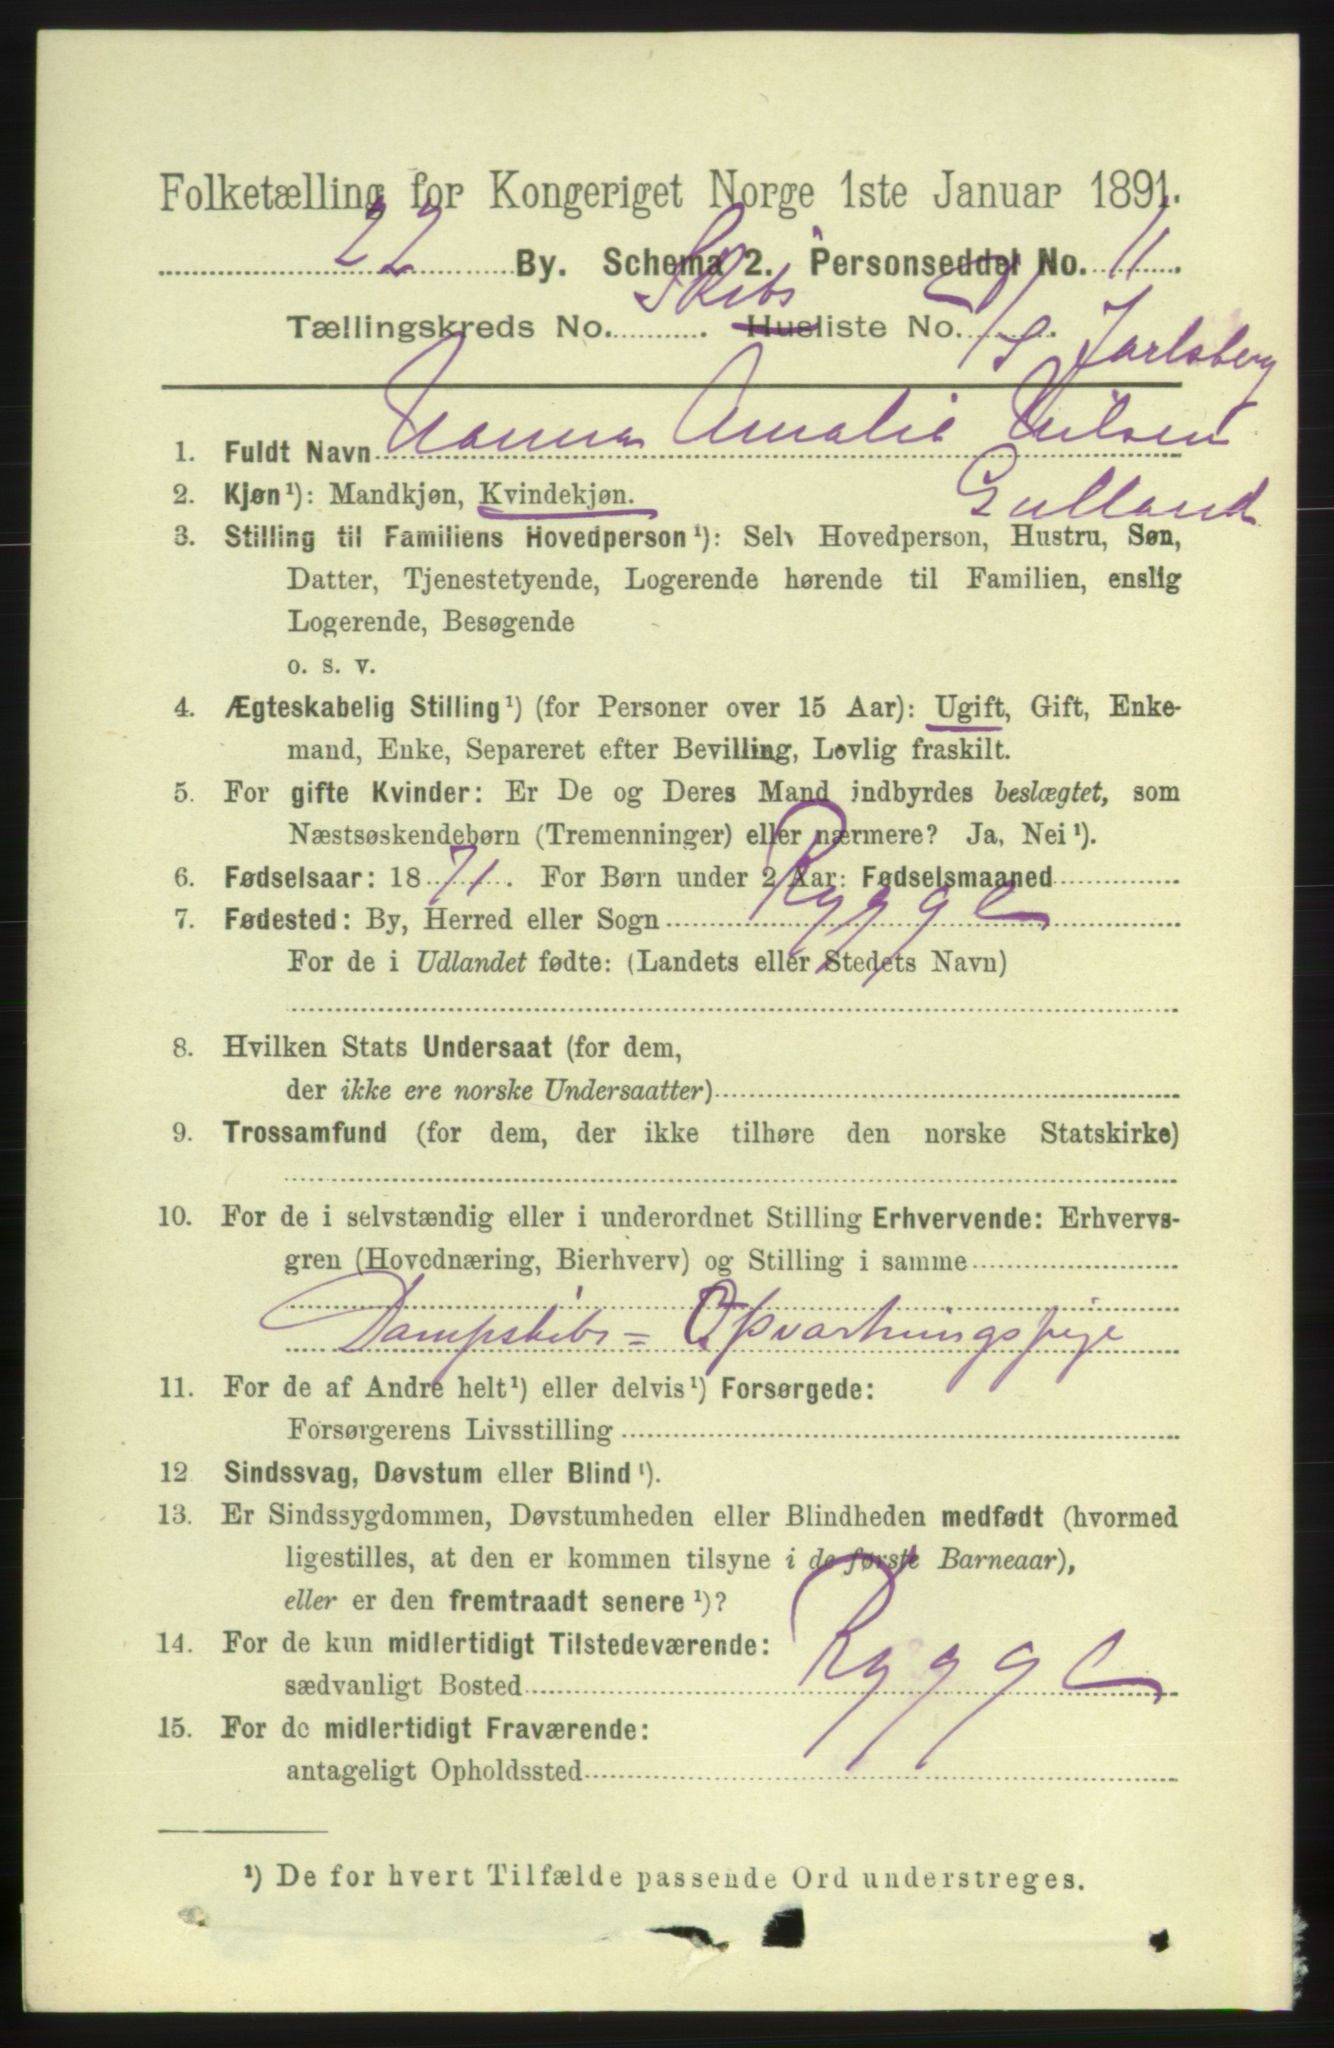 Folketælling for Kongeriget Norge 1ste Januar 1891.
22 By. Schema 2. Personseddel No. 11
Tællingskreds No. Skibs Husliste No. D/S Jarlsberg
1. Fuldt Navn Nanna Amalie Nilsen
Gulland
2. Kjøn¹): Mandkjøn, Kvindekjøn.
3. Stilling til Familiens Hovedperson¹): Selv Hovedperson, Hustru, Søn,
Datter, Tjenestetyende, Logerende hørende til Familien, enslig
Logerende, Besøgende
o. s. v.
4. Ægteskabelig Stilling¹) (for Personer over 15 Aar): Ugift, Gift, Enke-
mand, Enke, Separeret efter Bevilling, Lovlig fraskilt.
5. For gifte Kvinder: Er De og Deres Mand indbyrdes beslægtet, som
Næstsøskendebørn (Tremenninger) eller nærmere? Ja, Nei¹).
6. Fødselsaar: 1871. For Børn under 2 Aar: Fødselsmaaned
7. Fødested: By, Herred eller Sogn Rygge
For de i Udlandet fødte: (Landets eller Stedets Navn)
8. Hvilken Stats Undersaat (for dem,
der ikke ere norske Undersaatter)
9. Trossamfund (for dem, der ikke tilhøre den norske Statskirke)
10. For de i selvstændig eller i underordnet Stilling Erhvervende: Erhvervs-
gren (Hovednæring, Bierhverv) og Stilling i samme
Dampskibs= Opvartningspige
11. For de af Andre helt¹) eller delvis¹) Forsørgede:
Forsørgerens Livsstilling
12 Sindssvag, Døvstum eller Blind¹).
13. Er Sindssygdommen, Døvstumheden eller Blindheden medfødt (hvormed
ligestilles, at den er kommen tilsyne i de første Barneaar),
eller er den fremtraadt senere¹)?
14. For de kun midlertidigt Tilstedeværende:
sædvanligt Bosted Rygge
15. For de midlertidigt Fraværende:
antageligt Opholdssted
¹) De for hvert Tilfælde passende Ord understreges.